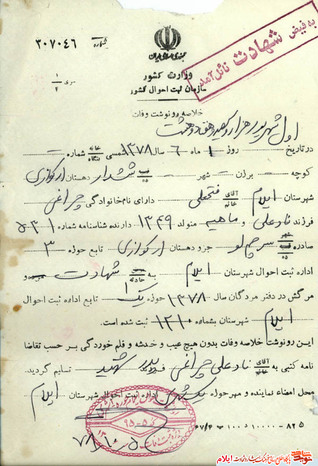 به فیض شهادت نائل آمد
شماره ۳۰۷۰۴۶
جمهوری اسلامی ایران
وزارت کشور
سازمان ثبت احوال کشور
سری
خلاصه رونوشت وفات
اول شهریور هزار و سیصد و هفتاد و هشت
در تاریخ روز ۱ ماه ۶ سال ۱۳۷۸ شمسی شماره
کوچه برزن شهر ششدار دهستان ارکوازی
شهرستان ایلام آقای فتحعلی دارای نام خانوادگی چراغی
فرزند نادعلی و ماهیه متولد ۱۳۴۹ دارنده شناسنامه شماره ۵۳۱
صادره سرچم لو جزو دهستان ارکوازی تابع حوزه ۳
اداره ثبت احوال شهرستان ایلام به شهادت
مرگش در دفتر مردگان سال ۱۳۷۸ حوزه یک تابع اداره ثبت احوال
ایلام شهرستان بشماره ۱۲۱۰ ثبت شده است.
این رونوشت خلاصه وفات بدون هیچ عیب و خدشه و قلم خوردگی بر حسب تقاضا
نامه کتبی به آقای نادعلی چراغی پدر شهید تسلیم گردید.
محل امضاء نماینده و مهر حوزه یک شهری اداره ثبت احوال شهرستان ایلام